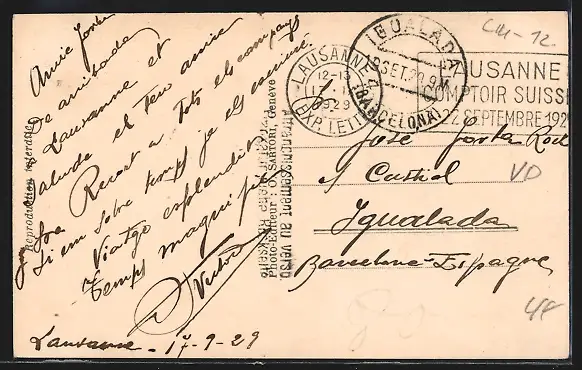 Amic Jorba
De arribada
Lausanne et
saluda el teu amic
Recort a Tots els companys
si em sobra temps ja els escriuré
Viatge esplendit
Temps magnific
Victor
Lausanne - 17-9-29
Reproduction interdite
Photo-Editeur: O. SARTORI, Genève
Affranchissement au verso
LAUSANNE
12-13
17
1929
EXP. LETT.
IGUALADA
SET.29
(BARCELONA)
LAUSANNE
COMPTOIR SUISSE
SEPTEMBRE 192
José Jorba
Igualada
Barcelone-Espagne
VD